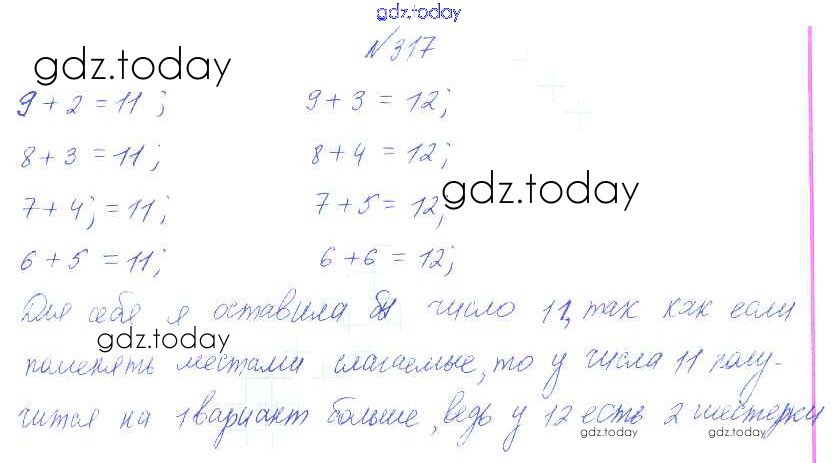 gdz.today
№317
gdz.today
9+2=11; 9+3=12;
8+3=11; 8+4=12;
gdz.today
7+4;=11; 7+5=12;
6+5=11; 6+6=12;
Для себя я оставила бы число 11, так как если
gdz.today
поменять местами слагаемые, то у числа 11 полу-
чится на 1 вариант больше, ведь у 12 есть 2 шестерки
gdz.today gdz.today